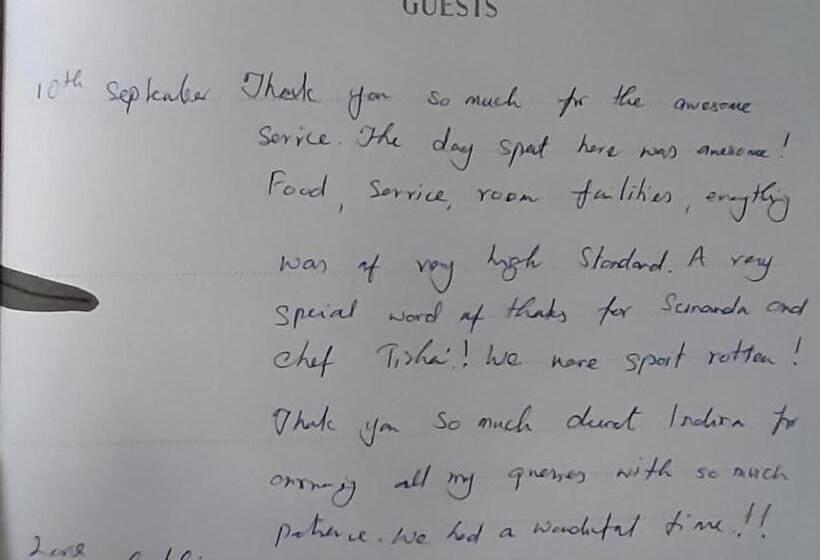 GUESTS
10th September Thank you so much for the awesome
Service. The day spent here was awesome!
Food, Service, room facilities, everything
was of very high Standard. A very
special word of thanks for Sunanda and
chef Tisha! We were spoilt rotten!
Thank you so much Indira for
all my queries with so much
patience. We had a wonderful time!!